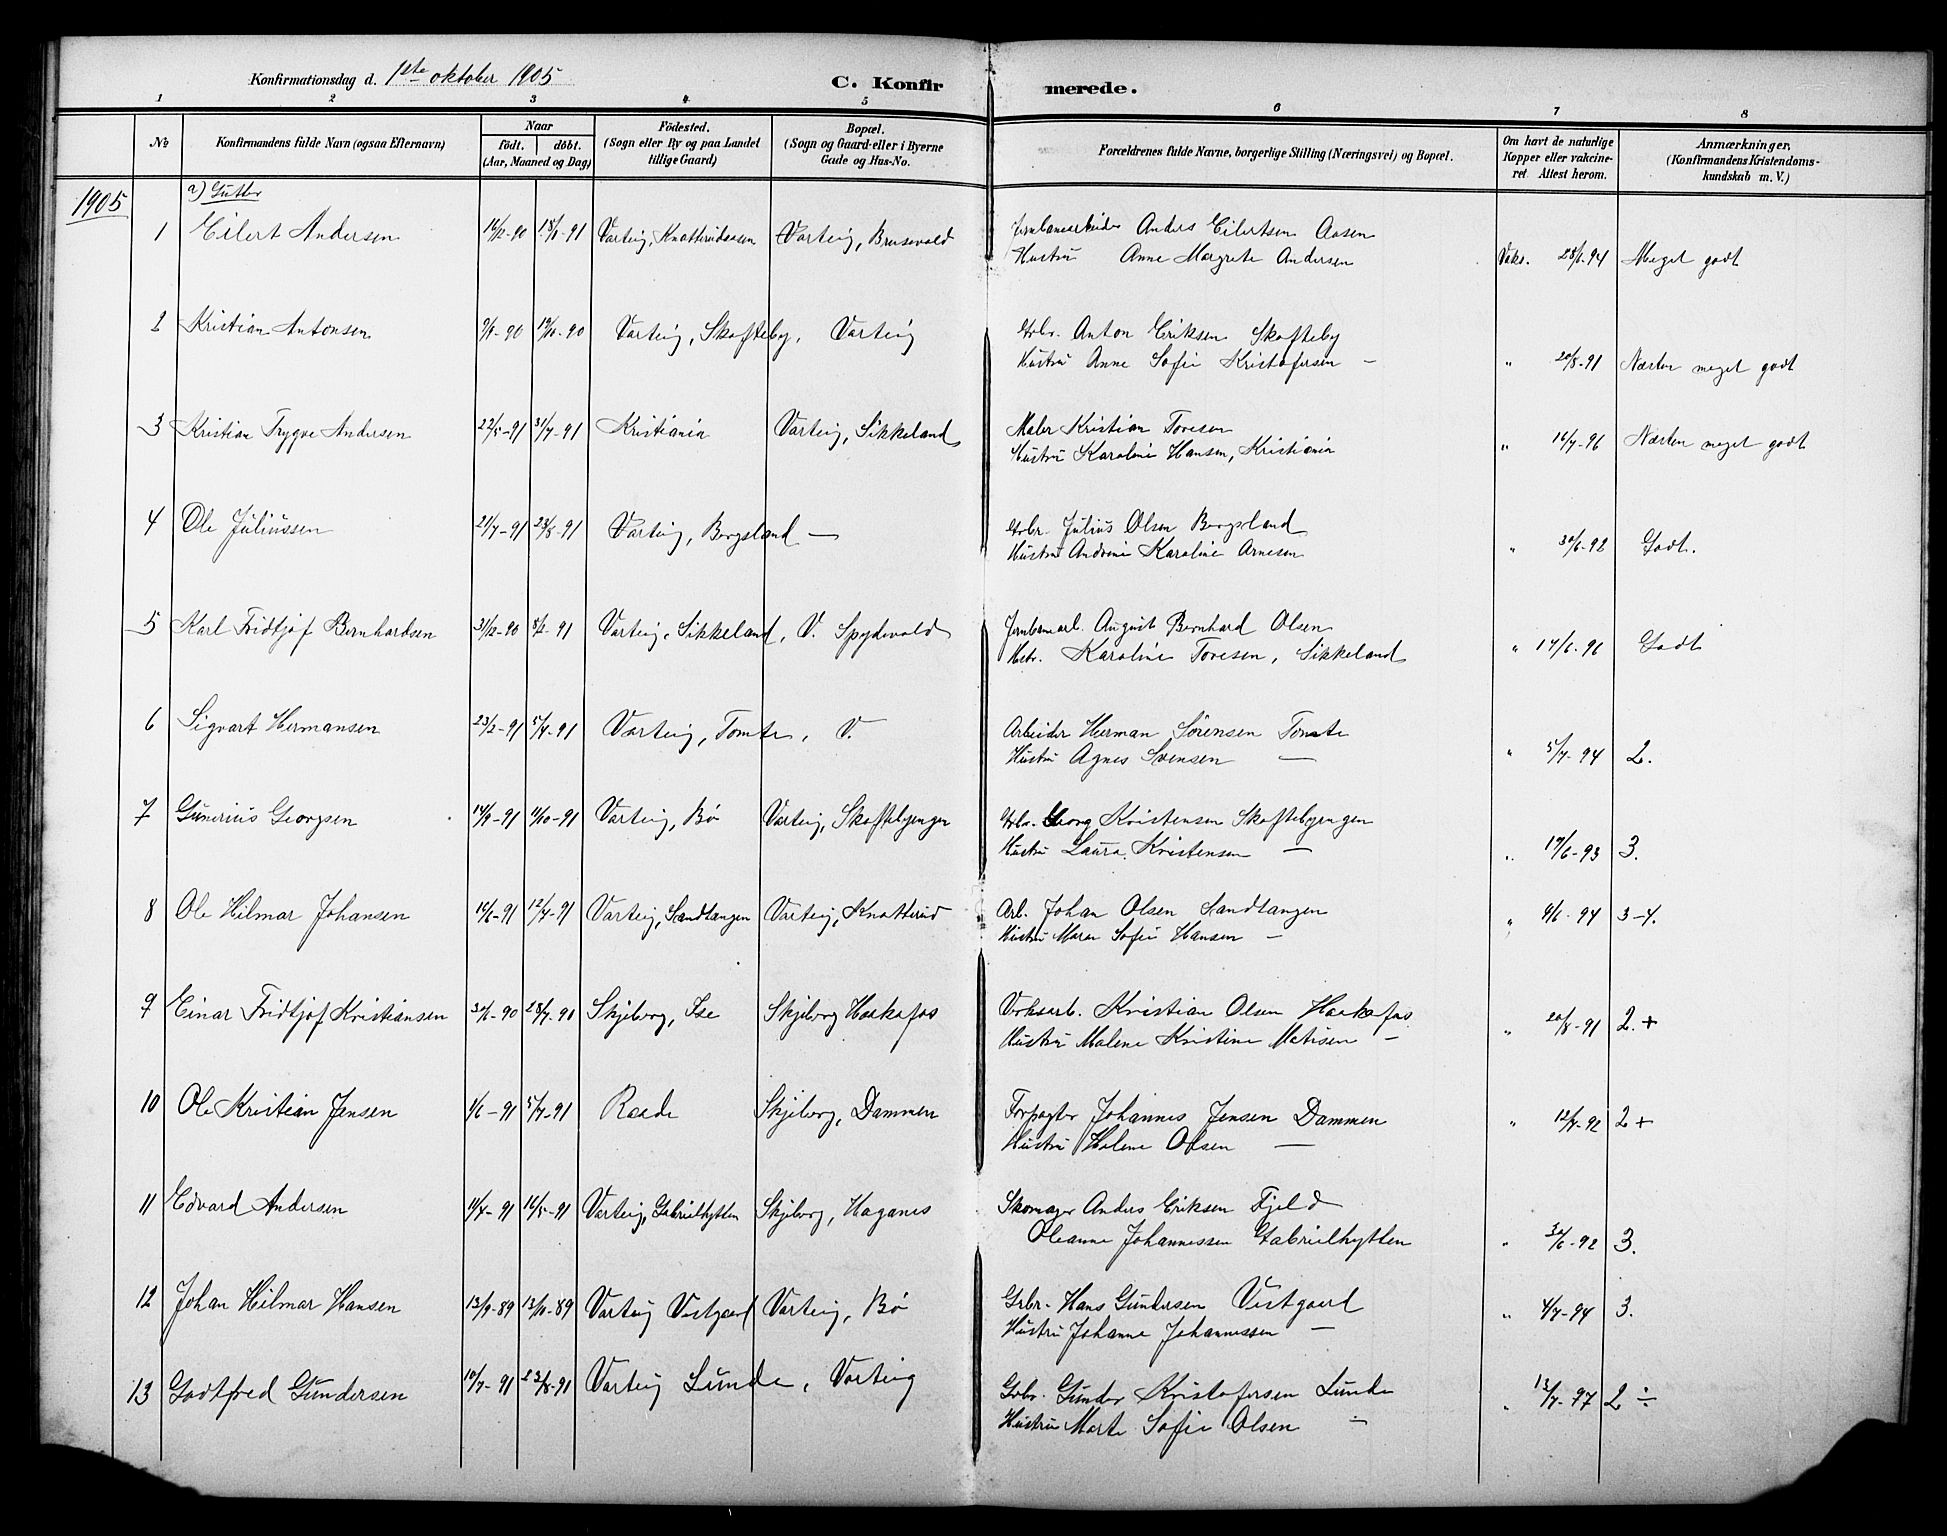 Konfirmationsdag d. 1ste oktober 1905 C. Konfirmerede.
1 2 3 4 5 6 7 8
No
Konfirmandens fulde Navn (ogsaa Efternavn)
Naar
født. døbt.
(Aar, Maaned og Dag)
Fødested.
(Sogn eller By og paa Landet
tillige Gaard)
Bopæl.
(Sogn og Gaard eller i Byerne
Gade og Hus-No.
Forældrenes fulde Navne, borgerlige Stilling (Næringsvei) og Bopæl.
Om havt de naturlige
Kopper eller vakcine-
ret Attest herom.
Anmærkninger,
(Konfirmandens Kristendoms-
kundskab m. V.)
1905 a) Gutter
1 Eilert Andersen 16/12-90 18/1-91 Varteig, Knatterudaasen Varteig, Brusevold Jernbanearbeider Anders Eilertsen Aasen
Hustru Anne Margrete Andersen Vaks. 28/6-94 Meget godt
2 Kristian Antonsen 9/9-90 19/10-90 Varteig, Skofteby, Varteig Gbr. Anton Eriksen Skofteby
Hustru Anne Sofie Kristofersen — " 20/8-91 Næsten meget godt
3 Kristian Trygve Andersen 22/5-91 31/7-91 Kristiania Varteig, Sikkeland Maler Kristian Toresen
Hustru Karoline Hansen, Kristiania " 16/7-96 Næsten meget godt
4 Ole Juliussen 21/7-91 23/8-91 Varteig, Borgsland — Gbr. Julius Olsen Borgsland
Hustru Andrine Karoline Arnesen " 30/6-92 Godt.
5 Karl Fridtjof Bernhardsen 31/12-90 8/2-91 Varteig, Sikkeland, V. Spydevold Jernbanearb. August Bernhard Olsen
Hstr. Karoline Toresen, Sikkeland " 17/6-96 Godt
6 Sigvart Hermansen 23/2-91 5/4-91 Varteig, Tomte, V. Arbeider Herman Sørensen Tomte
Hustru Agnes Svensen — " 5/7-94 2.
7 Gunerius Georgsen 14/9-91 11/10-91 Varteig, Bø Varteig, Skoftebyengen Gbr. Georg Kristensen Skoftebyengen
Hustru Laura Kristensen — " 19/6-93 3.
8 Ole Hilmar Johansen 16/6-91 12/7-91 Varteig, Sandtangen Varteig, Knatterud Arb. Johan Olsen Sandtangen
Hustru Maren Sofie Hansen — " 9/6-94 3-4.
9 Einar Fridtjof Kristiansen 30/6-90 28/7-90 Skjeberg, Ise Skjeberg Haakafos Verksarb. Kristian Olsen Haakafos
Hustru Malene Kristine Matisen — " 20/8-91 2.+
10 Ole Kristian Jensen 1/6-91 5/7-91 Raade Skjeberg, Dammen Forpagter Johannes Jensen Dammen
Hustru Halene Olsen — " 12/7-92 2+
11 Edvard Andersen 11/4-91 16/5-91 Varteig, Gabrielhytten Skjeberg, Haganes Skomager Anders Eriksen Fjeld
Oleanne Johannessen Gabrielhytten " 30/6-92 3.
12 Johan Hilmar Hansen 13/9-89 13/10-89 Varteig Vestgaard Varteig, Bø Grbr. Hans Gundersen Vestgaard
Hustru Johanne Johannessen — " 4/7-94 3.
13 Godtfred Gundersen 10/7-91 23/8-91 Varteig Lunde, Varteig Gbr. Gunder Kristofersen Lunde
Hustru Marte Sofie Olsen — " 13/7-97 2 ÷